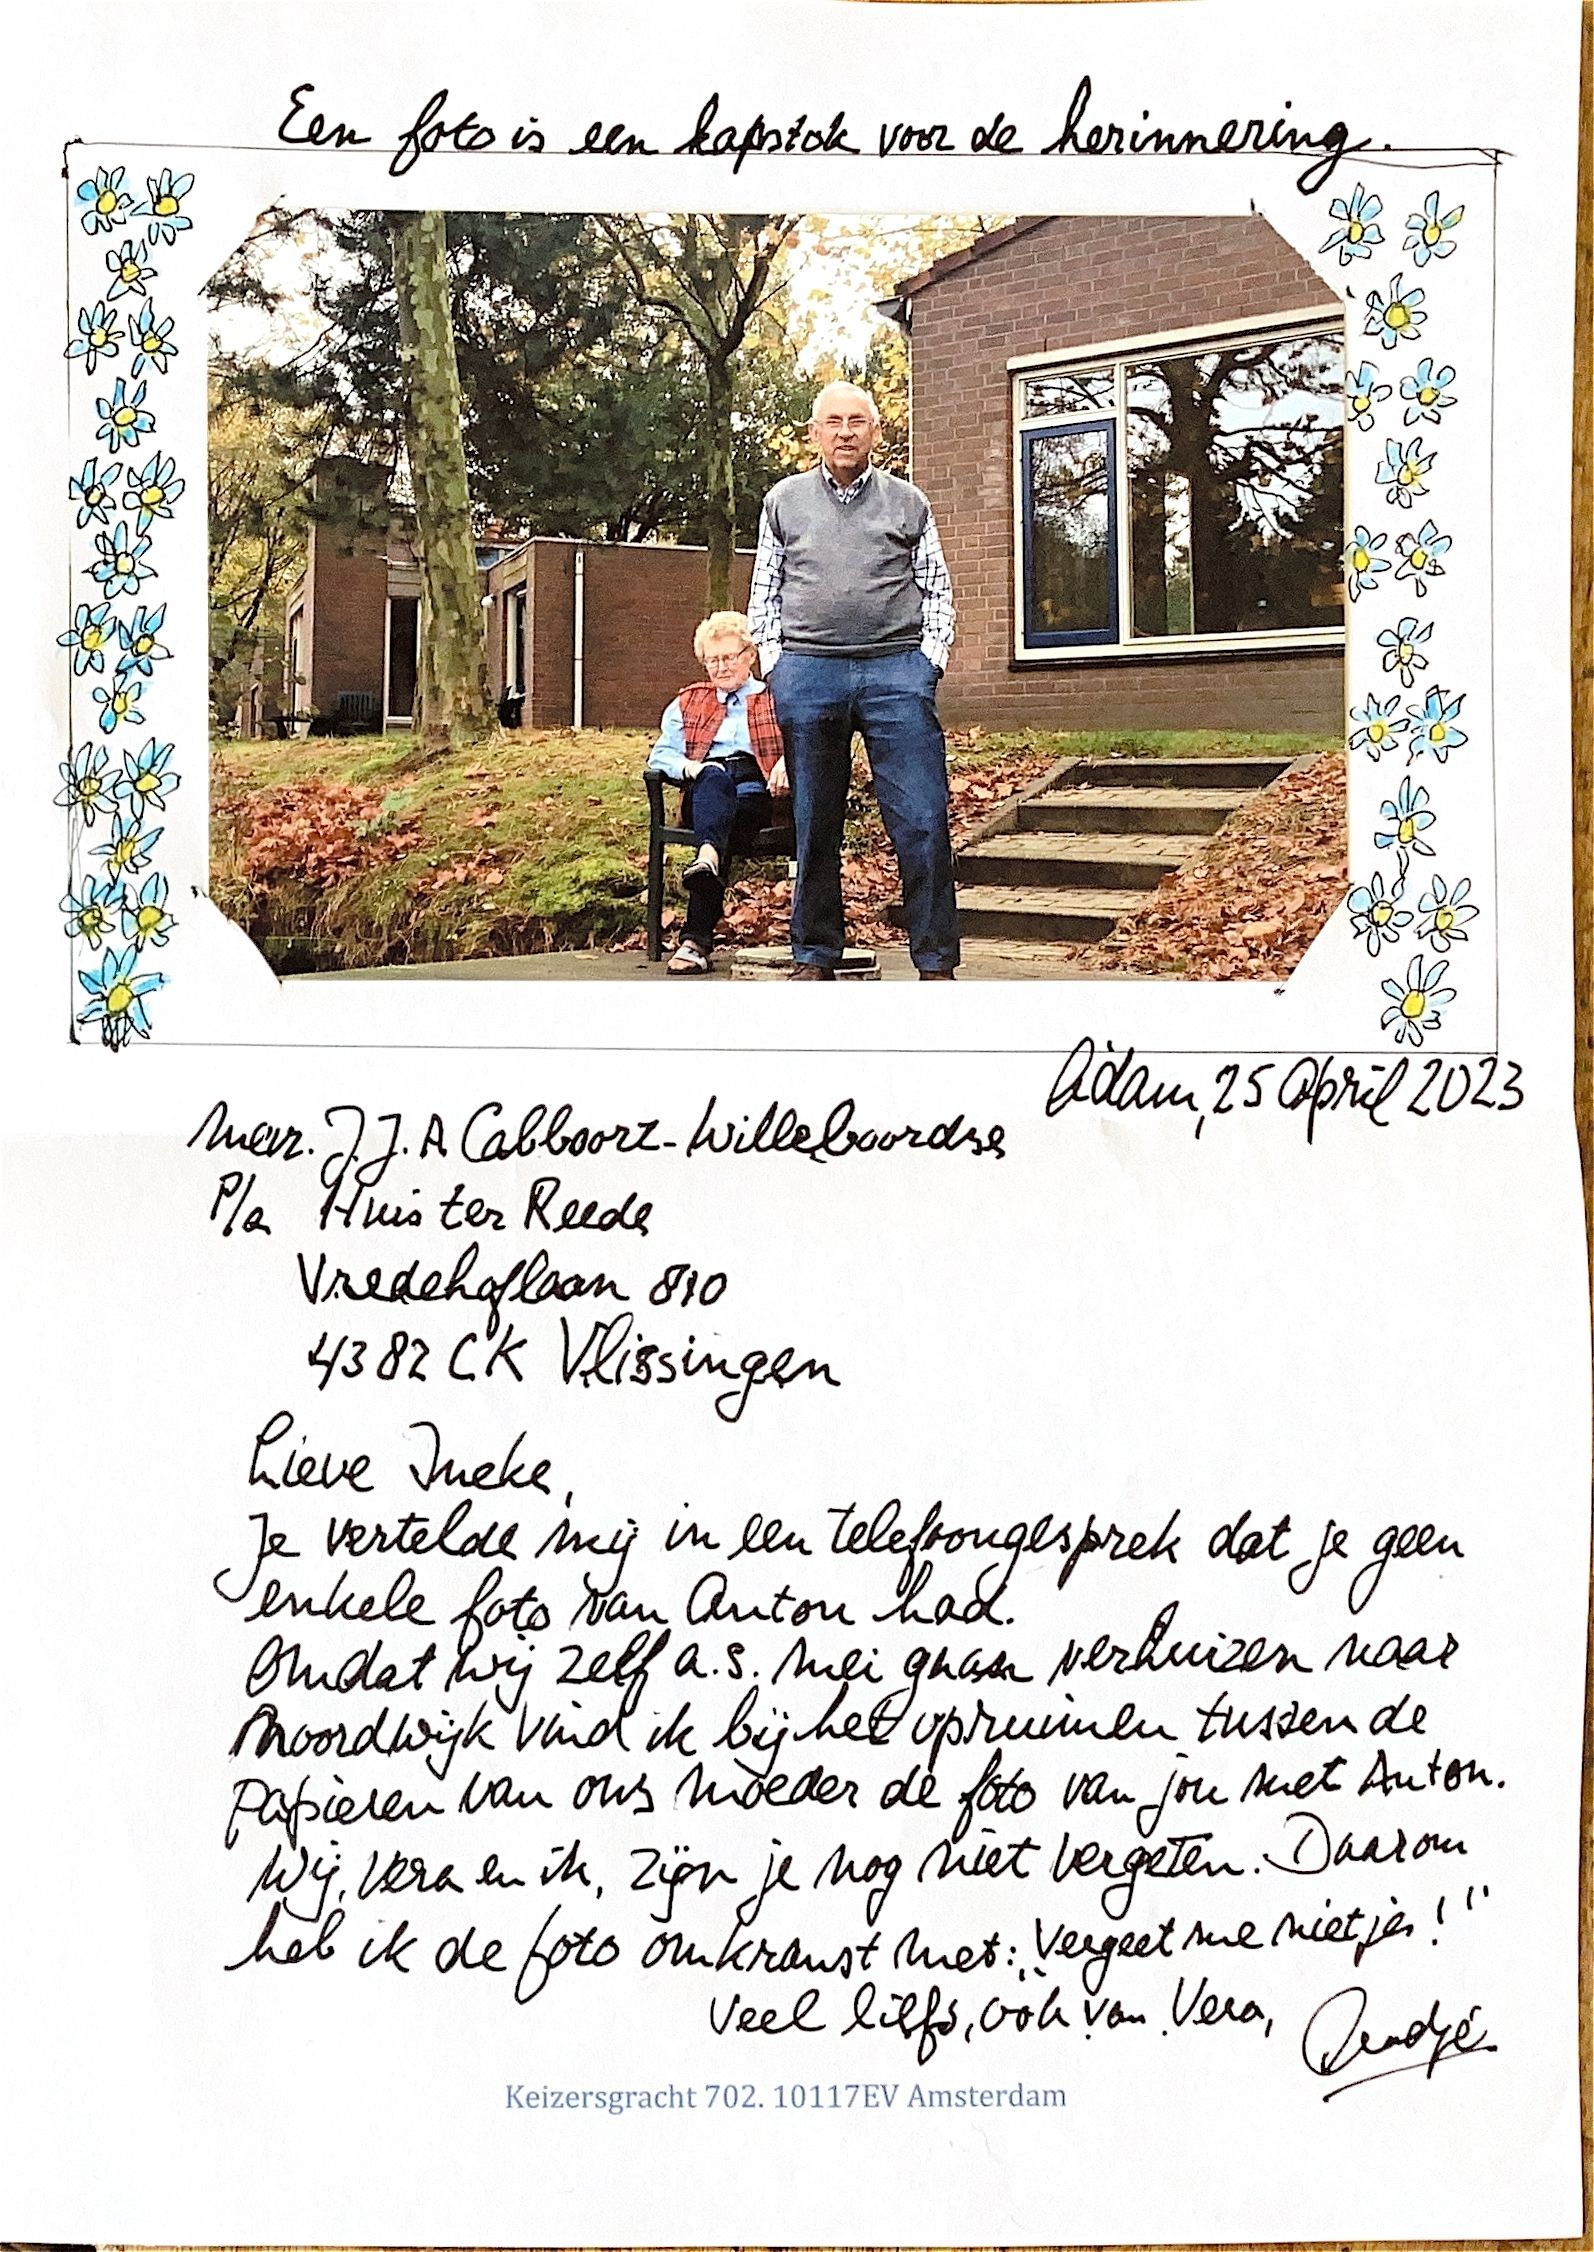 Een foto is een kapstok voor de herinnering.
A'dam, 25 april 2023
Mevr. J.J.A Cabboort-Willeboordse
P/a Huis ter Reede
Vredehoflaan 810
4382 CK Vlissingen
Lieve Ineke,
Je vertelde mij in een telefoongesprek dat je geen
enkele foto van Anton had.
Omdat wij zelf a.s. mei gaan verhuizen naar
Noordwijk vind ik bij het opruimen tussen de
papieren van ons moeder de foto van jou met Anton.
Wij, Vera en ik, zijn je nog niet vergeten. Daarom
heb ik de foto omkranst met: „Vergeet me nietjes!"
Veel liefs, ook van Vera,
Keizersgracht 702. 10117EV Amsterdam